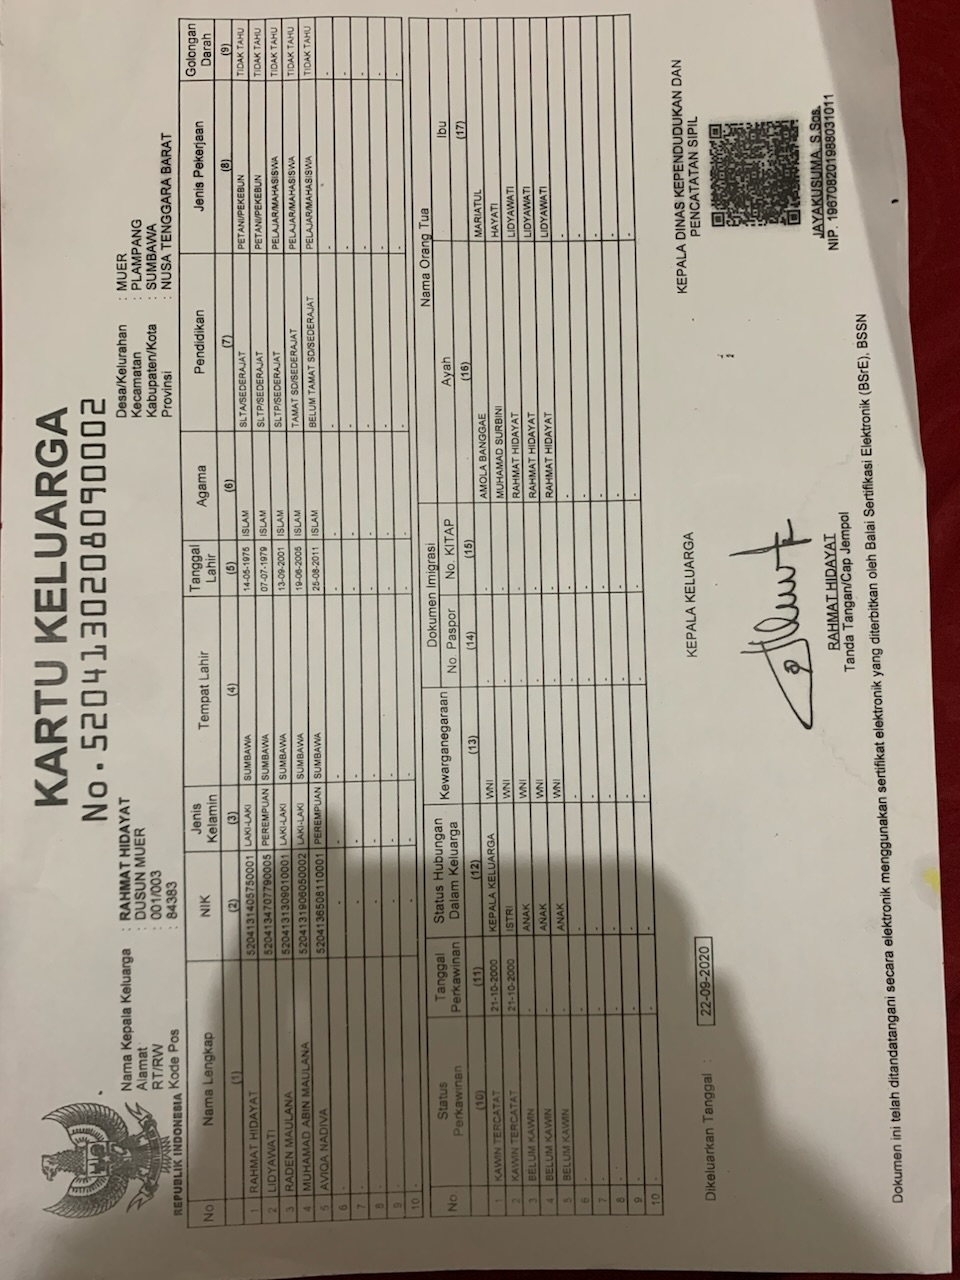 KARTU KELUARGA
No. 5204130208090002
Nama Kepala Keluarga : RAHMAT HIDAYAT
Alamat : DUSUN MUER
RT/RW : 001/003
Kode Pos : 84383
Desa/Kelurahan : MUER
Kecamatan : PLAMPANG
Kabupaten/Kota : SUMBAWA
Provinsi : NUSA TENGGARA BARAT
REPUBLIK INDONESIA
No Nama Lengkap NIK Jenis Kelamin Tempat Lahir Tanggal Lahir Agama Pendidikan Jenis Pekerjaan Golongan Darah
(1) (2) (3) (4) (5) (6) (7) (8) (9)
1 RAHMAT HIDAYAT 5204131405750001 LAKI-LAKI SUMBAWA 14-05-1975 ISLAM SLTA/SEDERAJAT PETANI/PEKEBUN TIDAK TAHU
2 LIDYAWATI 5204134707790005 PEREMPUAN SUMBAWA 07-07-1979 ISLAM SLTP/SEDERAJAT PETANI/PEKEBUN TIDAK TAHU
3 RADEN MAULANA 5204131309010001 LAKI-LAKI SUMBAWA 13-09-2001 ISLAM SLTP/SEDERAJAT PELAJAR/MAHASISWA TIDAK TAHU
4 MUHAMAD ABIN MAULANA 5204131906050002 LAKI-LAKI SUMBAWA 19-06-2005 ISLAM TAMAT SD/SEDERAJAT PELAJAR/MAHASISWA TIDAK TAHU
5 AVIQA NADIVA 5204136508110001 PEREMPUAN SUMBAWA 25-08-2011 ISLAM BELUM TAMAT SD/SEDERAJAT PELAJAR/MAHASISWA TIDAK TAHU
6 - - - - - - - - -
7 - - - - - - - - -
8 - - - - - - - - -
9 - - - - - - - - -
10 - - - - - - - - -
No Status Perkawinan Tanggal Perkawinan Status Hubungan Dalam Keluarga Kewarganegaraan Dokumen Imigrasi Nama Orang Tua
No. Paspor No. KITAP Ayah Ibu
(10) (11) (12) (13) (14) (15) (16) (17)
1 KAWIN TERCATAT 21-10-2000 KEPALA KELUARGA WNI - - AMOLA BANGGAE MARIATUL
2 KAWIN TERCATAT 21-10-2000 ISTRI WNI - - MUHAMAD SURBINI HAYATI
3 BELUM KAWIN - ANAK WNI - - RAHMAT HIDAYAT LIDYAWATI
4 BELUM KAWIN - ANAK WNI - - RAHMAT HIDAYAT LIDYAWATI
5 BELUM KAWIN - ANAK WNI - - RAHMAT HIDAYAT LIDYAWATI
6 - - - - - - - -
7 - - - - - - - -
8 - - - - - - - -
9 - - - - - - - -
10 - - - - - - - -
Dikeluarkan Tanggal : 22-09-2020
KEPALA KELUARGA
RAHMAT HIDAYAT
Tanda Tangan/Cap Jempol
KEPALA DINAS KEPENDUDUKAN DAN
PENCATATAN SIPIL
JAYAKUSUMA, S.Sos.
NIP. 196708201988031011
Dokumen ini telah ditandatangani secara elektronik menggunakan sertifikat elektronik yang diterbitkan oleh Balai Sertifikasi Elektronik (BSrE), BSSN